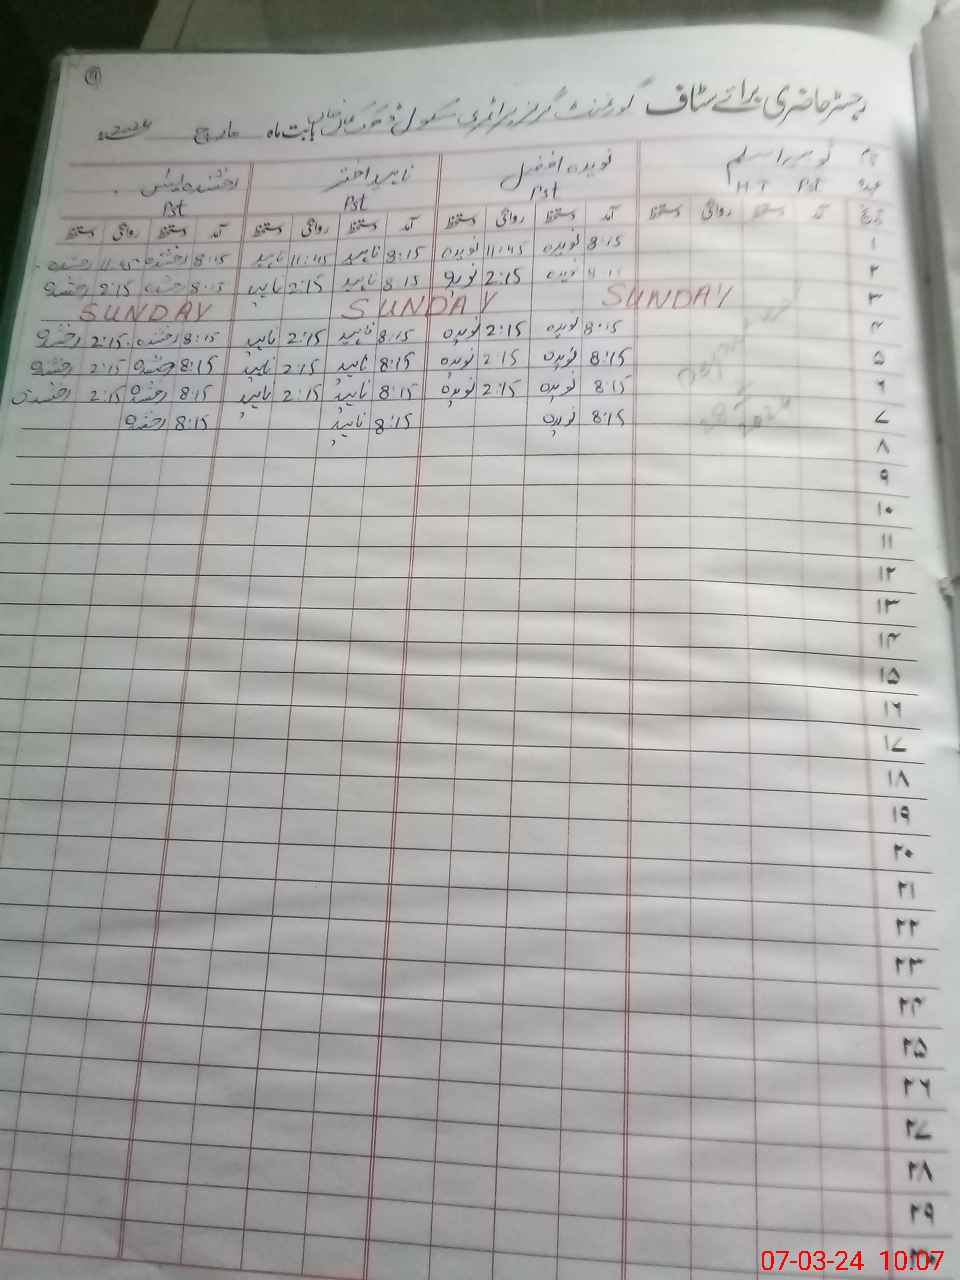 رجسٹر حاضری برائے سٹاف گورنمنٹ گرلز پرائمری سکول بابت ماہ مارچ 2024
نام نوید افضل ناہید اختر
عہدہ Pst H T Pst Pst Pst
تاریخ آمد دستخط روانگی دستخط آمد دستخط روانگی دستخط آمد دستخط روانگی دستخط آمد دستخط روانگی دستخط
۱ 8:15 نویدہ 11:45 نویدہ 8:15 ناہید 11:45 ناہید 8:15 رخشندہ 11:45 رخشندہ
۲ نویدہ 2:15 8:15 ناہید 2:15 ناہید 8:15 2:15
۳ SUNDAY SUNDAY SUNDAY
۴ 8:15 نویدہ 2:15 نویدہ 8:15 ناہید 2:15 ناہید 8:15 رخشندہ 2:15
۵ 8:15 نویدہ 2:15 نویدہ 8:15 ناہید 2:15 ناہید 8:15 2:15
۶ 8:15 نویدہ 2:15 نویدہ 8:15 ناہید 2:15 ناہید 8:15 2:15
۷ 8:15 نویدہ 8:15 ناہید 8:15
۸
۹
۱۰
۱۱
۱۲
۱۳
۱۴
۱۵
۱۶
۱۷
۱۸
۱۹
۲۰
۲۱
۲۲
۲۳
۲۴
۲۵
۲۶
۲۷
۲۸
۲۹
۳۰
07-03-24 10:07